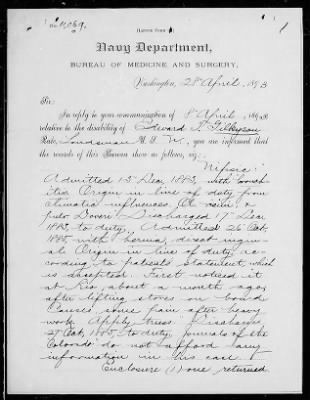 (LETTER FORM 2)
Navy Department,
BUREAU OF MEDICINE AND SURGERY,
Washington, 28 April, 1893
Sir:
In reply to your communication of 8 April, 1893
relative to the disability of Edward S. Gilkyson
Rate, Landsman U.S.N., you are informed that
the records of this Bureau show as follows, viz:
"Nipsic":
Admitted 15" Dec, 1883, with bronch-
itis Origin in line of duty from
climatic influences.
Discharged 17" Dec,
1883, to duty. Admitted 26 Oct.
1885, with hernia, direct ingui-
nal Origin in line of duty ac-
cording to patient's statement, which
is accepted. First noticed it
at Rio, about a month ago,
after lifting stores on board.
Causes some pain after heavy
work. Apply truss. Discharged
27 Oct, 1885, to duty, journals of the
"Colorado" do not afford any
information in this case.
Enclosure (1) one returned.